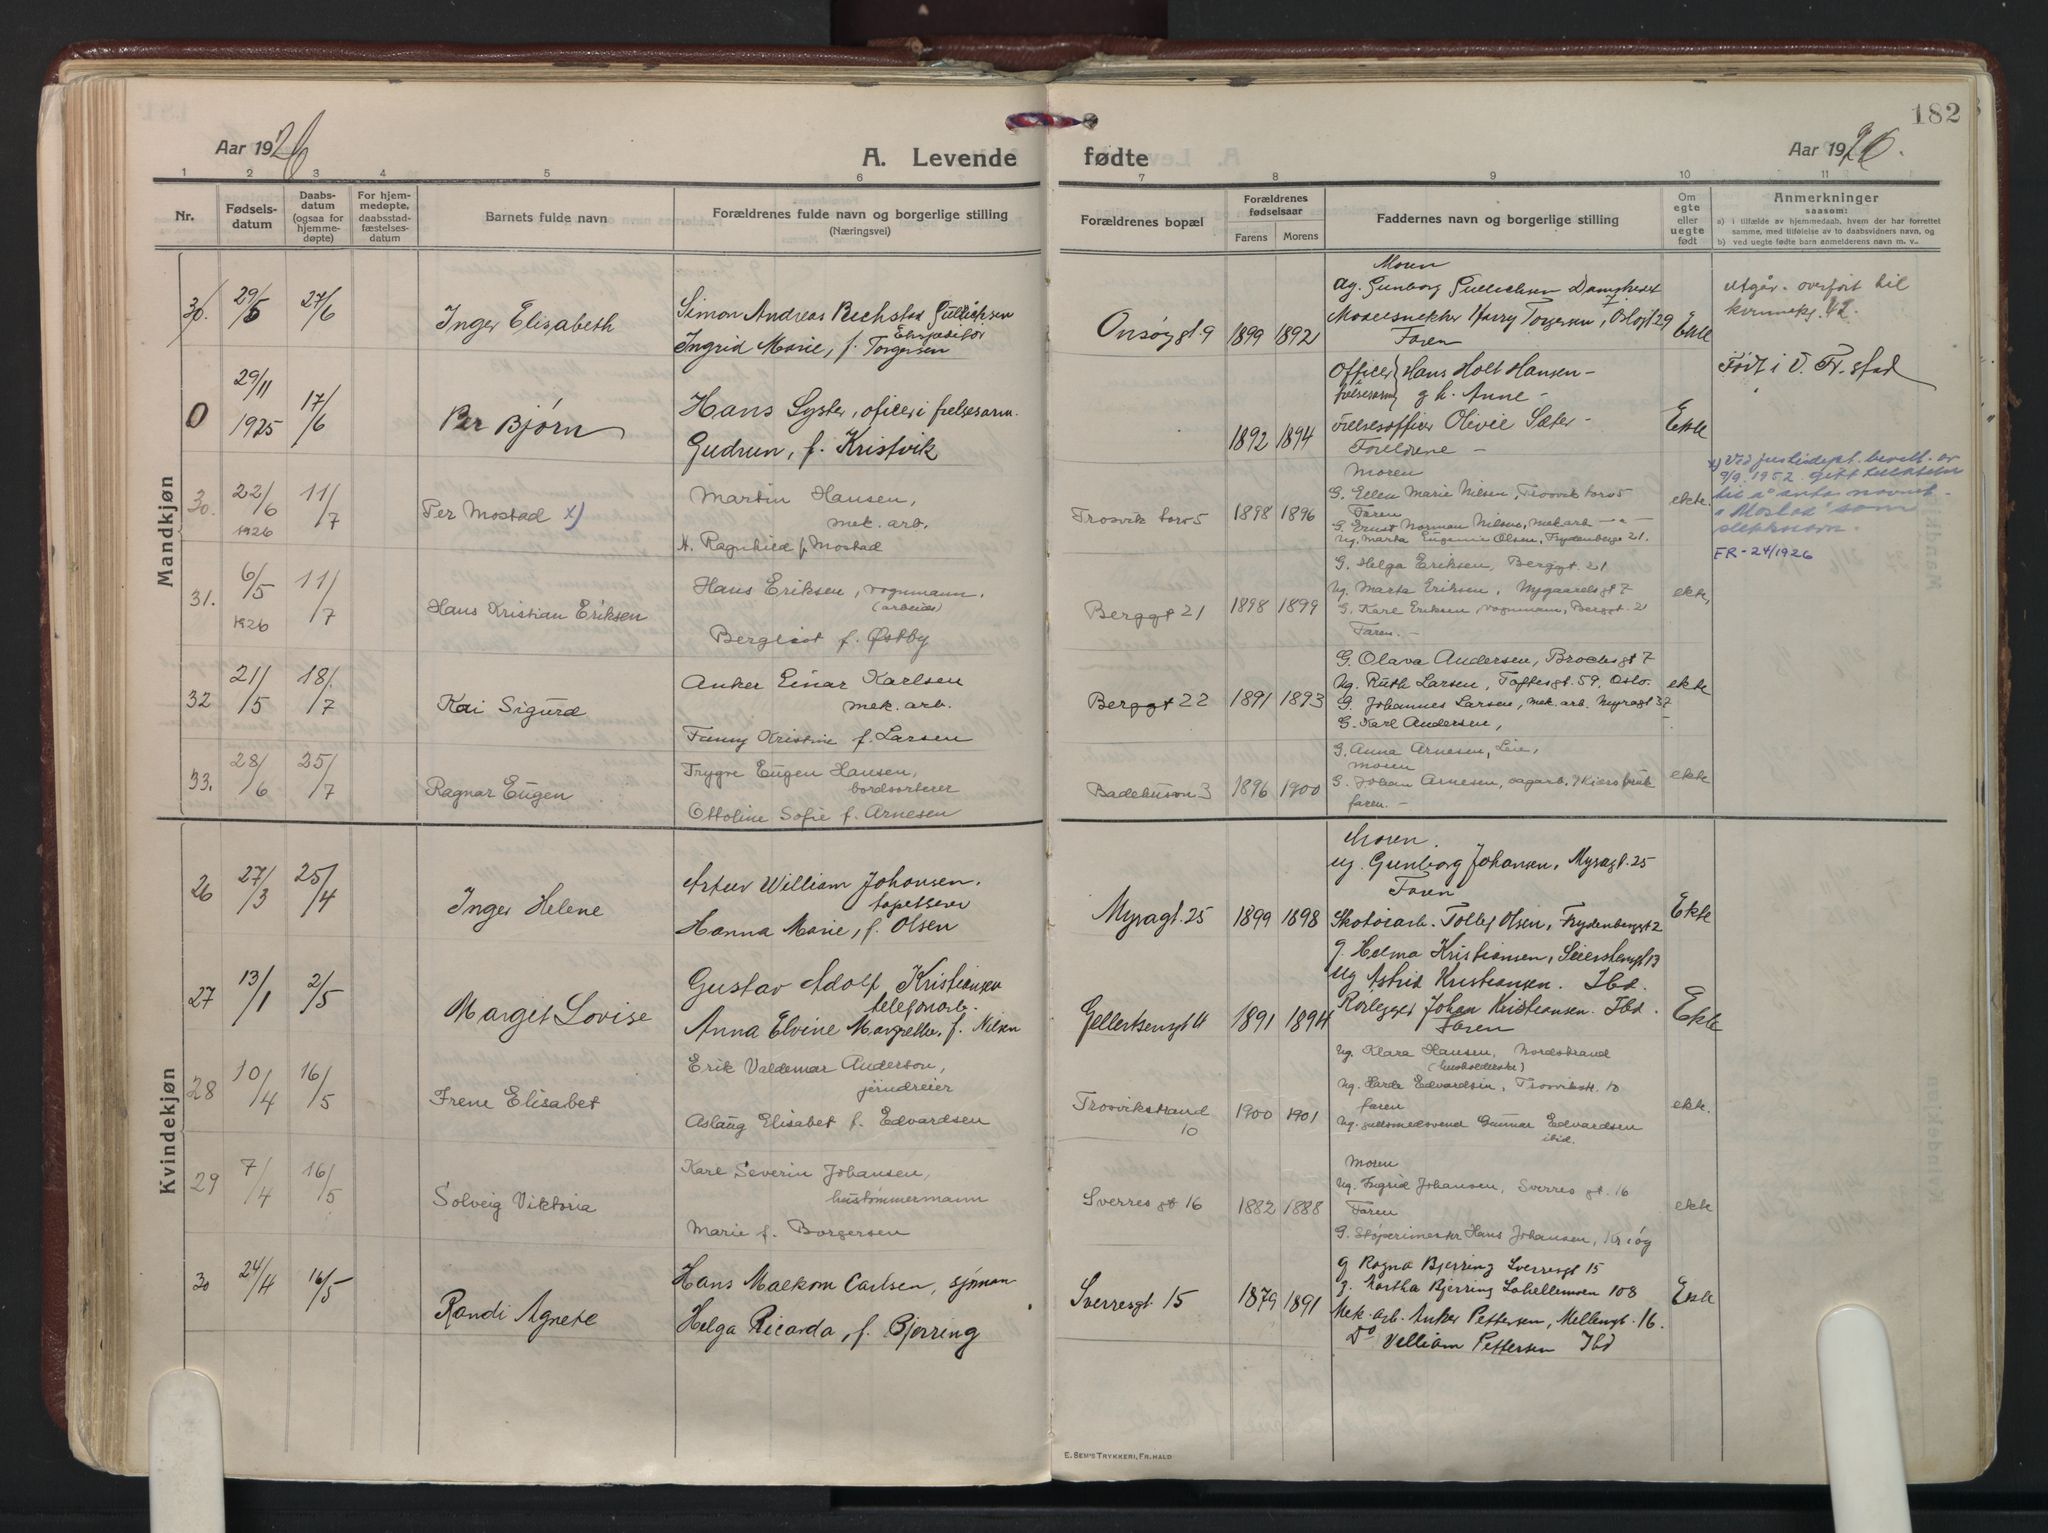 182
Aar 1926
A. Levende fødte
Aar 1926.
1 2 3 4 5 6 7 8 9 10 11
Nr.
Fødsels-
datum
Daabs-
datum
(ogsaa for
hjemme-
døpte)
For hjem-
medøpte,
daabsstad-
fæstelses-
datum
Barnets fulde navn
Forældrenes fulde navn og borgerlige stilling
(Næringsvei)
Forældrenes bopæl
Forældrenes
fødselsaar
Farens Morens
Faddernes navn og borgerlige stilling
Om
egte
eller
uegte
født
Anmerkninger
saasom:
a) i tilfælde av hjemmedaab, hvem der har forrettet
samme, med tilføielse av to daabsvidners navn, og
b) ved uegte fødte barn anmelderens navn m. v.
Mandkjøn
30. 29/5 27/6
Inger Elisabeth
Simon Andreas Bechstad Gullichsen
Ekspeditør
Ingrid Marie, f. Torgersen
Onsøygt 9 1899 1892
Moren
Ug. Gunborg Gullichsen
Harry Torgersen, Oslogt 29
Faren
Ekte
utgår - overført til
0 29/11 1925 17/6
Per Bjørn
Hans Lyster, oficer i frelsesarm.
Gudrun, f. Kristvik
1892 1894
Officer i frelsesarm
Hans Holt Hansen -
g h. Anne -
Frelsesofficer Olivie Sæter -
Foreldrene -
Ekte
Født i V. Fr.stad
30. 22/6 1926 11/7
Per Mostad x)
Martin Hansen,
mek. arb.
H. Ragnhild f. Mostad
Trosvik torv 5 1898 1896
Moren
G. Ellen Marie Nilsen, Trosvik torv 5
Faren
G. Ernst Norman Nilsen, mek arb - " -
Ug. Marta Eugenie Olsen, Frydenbergt 21.
ekte
x) Ved justisdept. bevill. av
9/9. 1952 gitt tillatelse
til å anta navnet
"Mostad" som
slektsnavn.
FR-24/1926
31. 6/5 1926 11/7
Hans Kristian Eriksen
Hans Eriksen, vognmann.
(arbeider)
Bergliot f. Østby
Berggt 21 1898 1899
G. Helga Eriksen, Berggt. 21
Ug. Marta Eriksen, Nygaardsgt 7
G. Karl Eriksen, vognmann, Berggt. 21
Faren. -
ekte,
32 21/5 18/7
Kai Sigurd
Anker Einar Karlsen
mek. arb.
Fanny Kristine f. Larsen
Berggt 22 1891 1893
G. Olava Andersen, Brochsgt 7
Ug. Ruth Larsen, Toftesgt. 59, Oslo.
G. Johannes Larsen, mek. arb. Myragt 37
G. Karl Andersen,
ekte
33. 28/6 25/7
Ragnar Eugen
Trygve Eugen Hansen,
bordsorterer
Ottoline Sofie f. Arnesen
Badehusvn 3 1896 1900
G. Anna Arnesen, Leie,
moren
G. Johan Arnesen, sagarb.
faren. -
ekte
Kvindekjøn
26 27/3 25/4
Inger Helene
Artur William Johansen.
tapetserer
Hanna Marie, f. Olsen
Myragt. 25 1899 1898
Moren.
Ug. Gunborg Johansen, Myragt. 25
Faren
Skotøiarb. Tollef Olsen, Frydenberggt 2
Ekte
27 13/1 2/5
Margit Lovise
Gustav Adolf Kristiansen
telefonarb.
Anna Elvine Margrethe, f. Nilsen
Gellertsengt 4 1891 1894
g. Helma Kristiansen, Seierstengt 13
Ug Astrid Kristiansen. Ibd.
Rørlegger Johan Kristiansen. Ibd.
Faren
Ekte
28 10/4 16/5
Irene Elisabet
Erik Valdemar Anderson,
jerndreier
Aslaug Elisabet f. Edvardsen
Trosvikstrand
10
1900 1901
Ug. Klara Hansen, Nordstrand
(husholderske)
Ug. Harda Edvardsen, Trosvikstr. 10
faren
Ug. gullsmedsvend Gunnar Edvardsen
ibid.
ekte.
29 7/4 16/5
Solveig Viktoria
Karl Severin Johansen,
hustømmermann
Marie f. Borgersen
Sverres gt 16 1882 1888
Moren
Ug. Ingrid Johansen, Sverres gt. 16
Faren
G. Støperimestr Hans Johansen, Kriøg
ekte
30 24/4 16/5
Randi Agnete
Hans Malkom Carlsen, sjøman
Helga Ricarda, f. Bjerring
Sverresgt. 15 1879 1891
g Ragna Bjerring Sverresgt 15
g. Martha Bjerring Lahellemoen 108
Mek. arb. Anker Pettersen, Mellemgt. 16.
Do Villiam Pettersen Ibd
Ekte
E. SEM'S TRYKKERI, FR.HALD